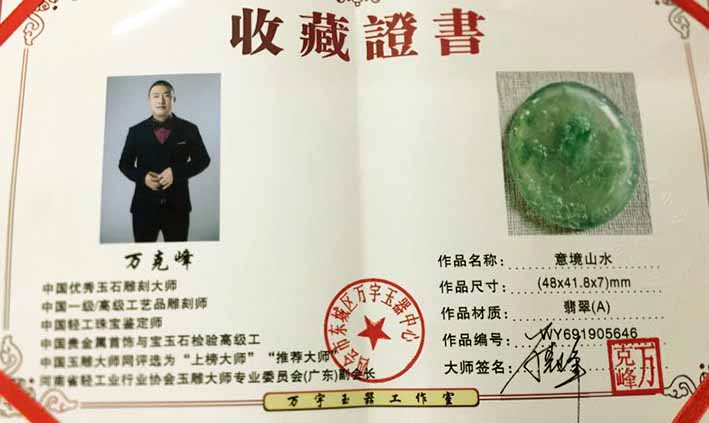 收藏證書
万克峰
中国优秀玉石雕刻大师
中国一级/高级工艺品雕刻师
中国轻工珠宝鉴定师
中国贵金属首饰与宝玉石检验高级工
中国玉雕大师网评选为“上榜大师”“推荐大师”
河南省轻工业行业协会玉雕大师专业委员会(广东)副会长
作品名称： 意境山水
作品尺寸： (48x41.8x7)mm
作品材质： 翡翠(A)
作品编号： WY691905646
大师签名：
万克峰
会市东城区万宇玉器中心
万宇玉器工作室